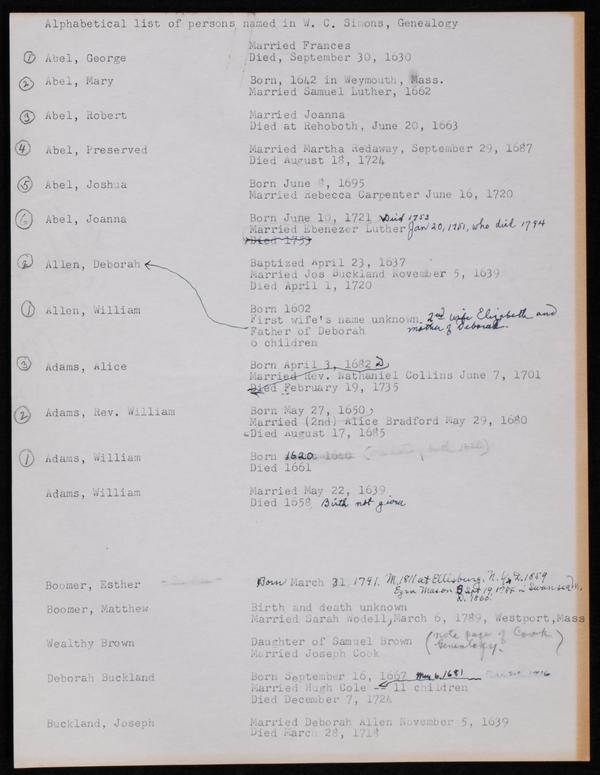 Alphabetical list of persons named in W. C. Simons, Genealogy
Married Frances
① Abel, George Died, September 30, 1630
② Abel, Mary Born, 1642 in Weymouth, Mass.
Married Samuel Luther, 1662
③ Abel, Robert Married Joanna
Died at Rehoboth, June 20, 1663
④ Abel, Preserved Married Martha Redaway, September 29, 1687
Died August 18, 1724
⑤ Abel, Joshua Born June 8, 1695
Married Rebecca Carpenter June 16, 1720
⑥ Abel, Joanna Born June 10, 1721 Died 1753
Married Ebenezer Luther Jan 20, 1751, who died 1794
Died 1753
② Allen, Deborah Baptized April 23, 1637
Married Jos Buckland November 5, 1639
Died April 1, 1720
① Allen, William Born 1602
First wife's name unknown. 2nd wife Elizabeth and
Father of Deborah mother of Deborah.
6 children
③ Adams, Alice Born April 3, 1682
Married Rev. Nathaniel Collins June 7, 1701
Died February 19, 1735
② Adams, Rev. William Born May 27, 1650
Married (2nd) Alice Bradford May 29, 1680
Died August 17, 1685
① Adams, William Born 1620
Died 1661
Adams, William Married May 22, 1639
Died 1658 Birth not given
Boomer, Esther Born March 31, 1791. M. 1811 at Ellisburg, N.Y. D. 1859
Ezra Mason B Sept 19, 1785 - Swansea
D. 1866.
Boomer, Matthew Birth and death unknown
Married Sarah Wodell, March 6, 1789, Westport, Mass
Wealthy Brown Daughter of Samuel Brown (note page of Cook
Married Joseph Cook Genealogy.)
Deborah Buckland Born September 16, 1667 May 6, 1681
Married Hugh Cole -- 11 children
Died December 7, 1724
Buckland, Joseph Married Deborah Allen November 5, 1639
Died March 28, 1718